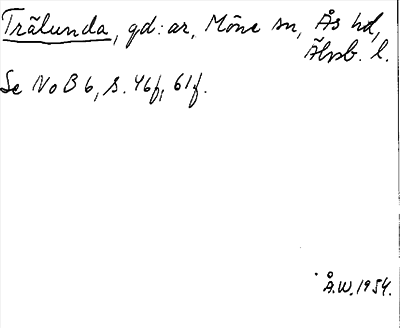 Trälunda, gd:ar, Måne sn, Ås hd,
Älvsb. l.
Se NoB 6, s. 46f, 61f.
Å.W. 1954.